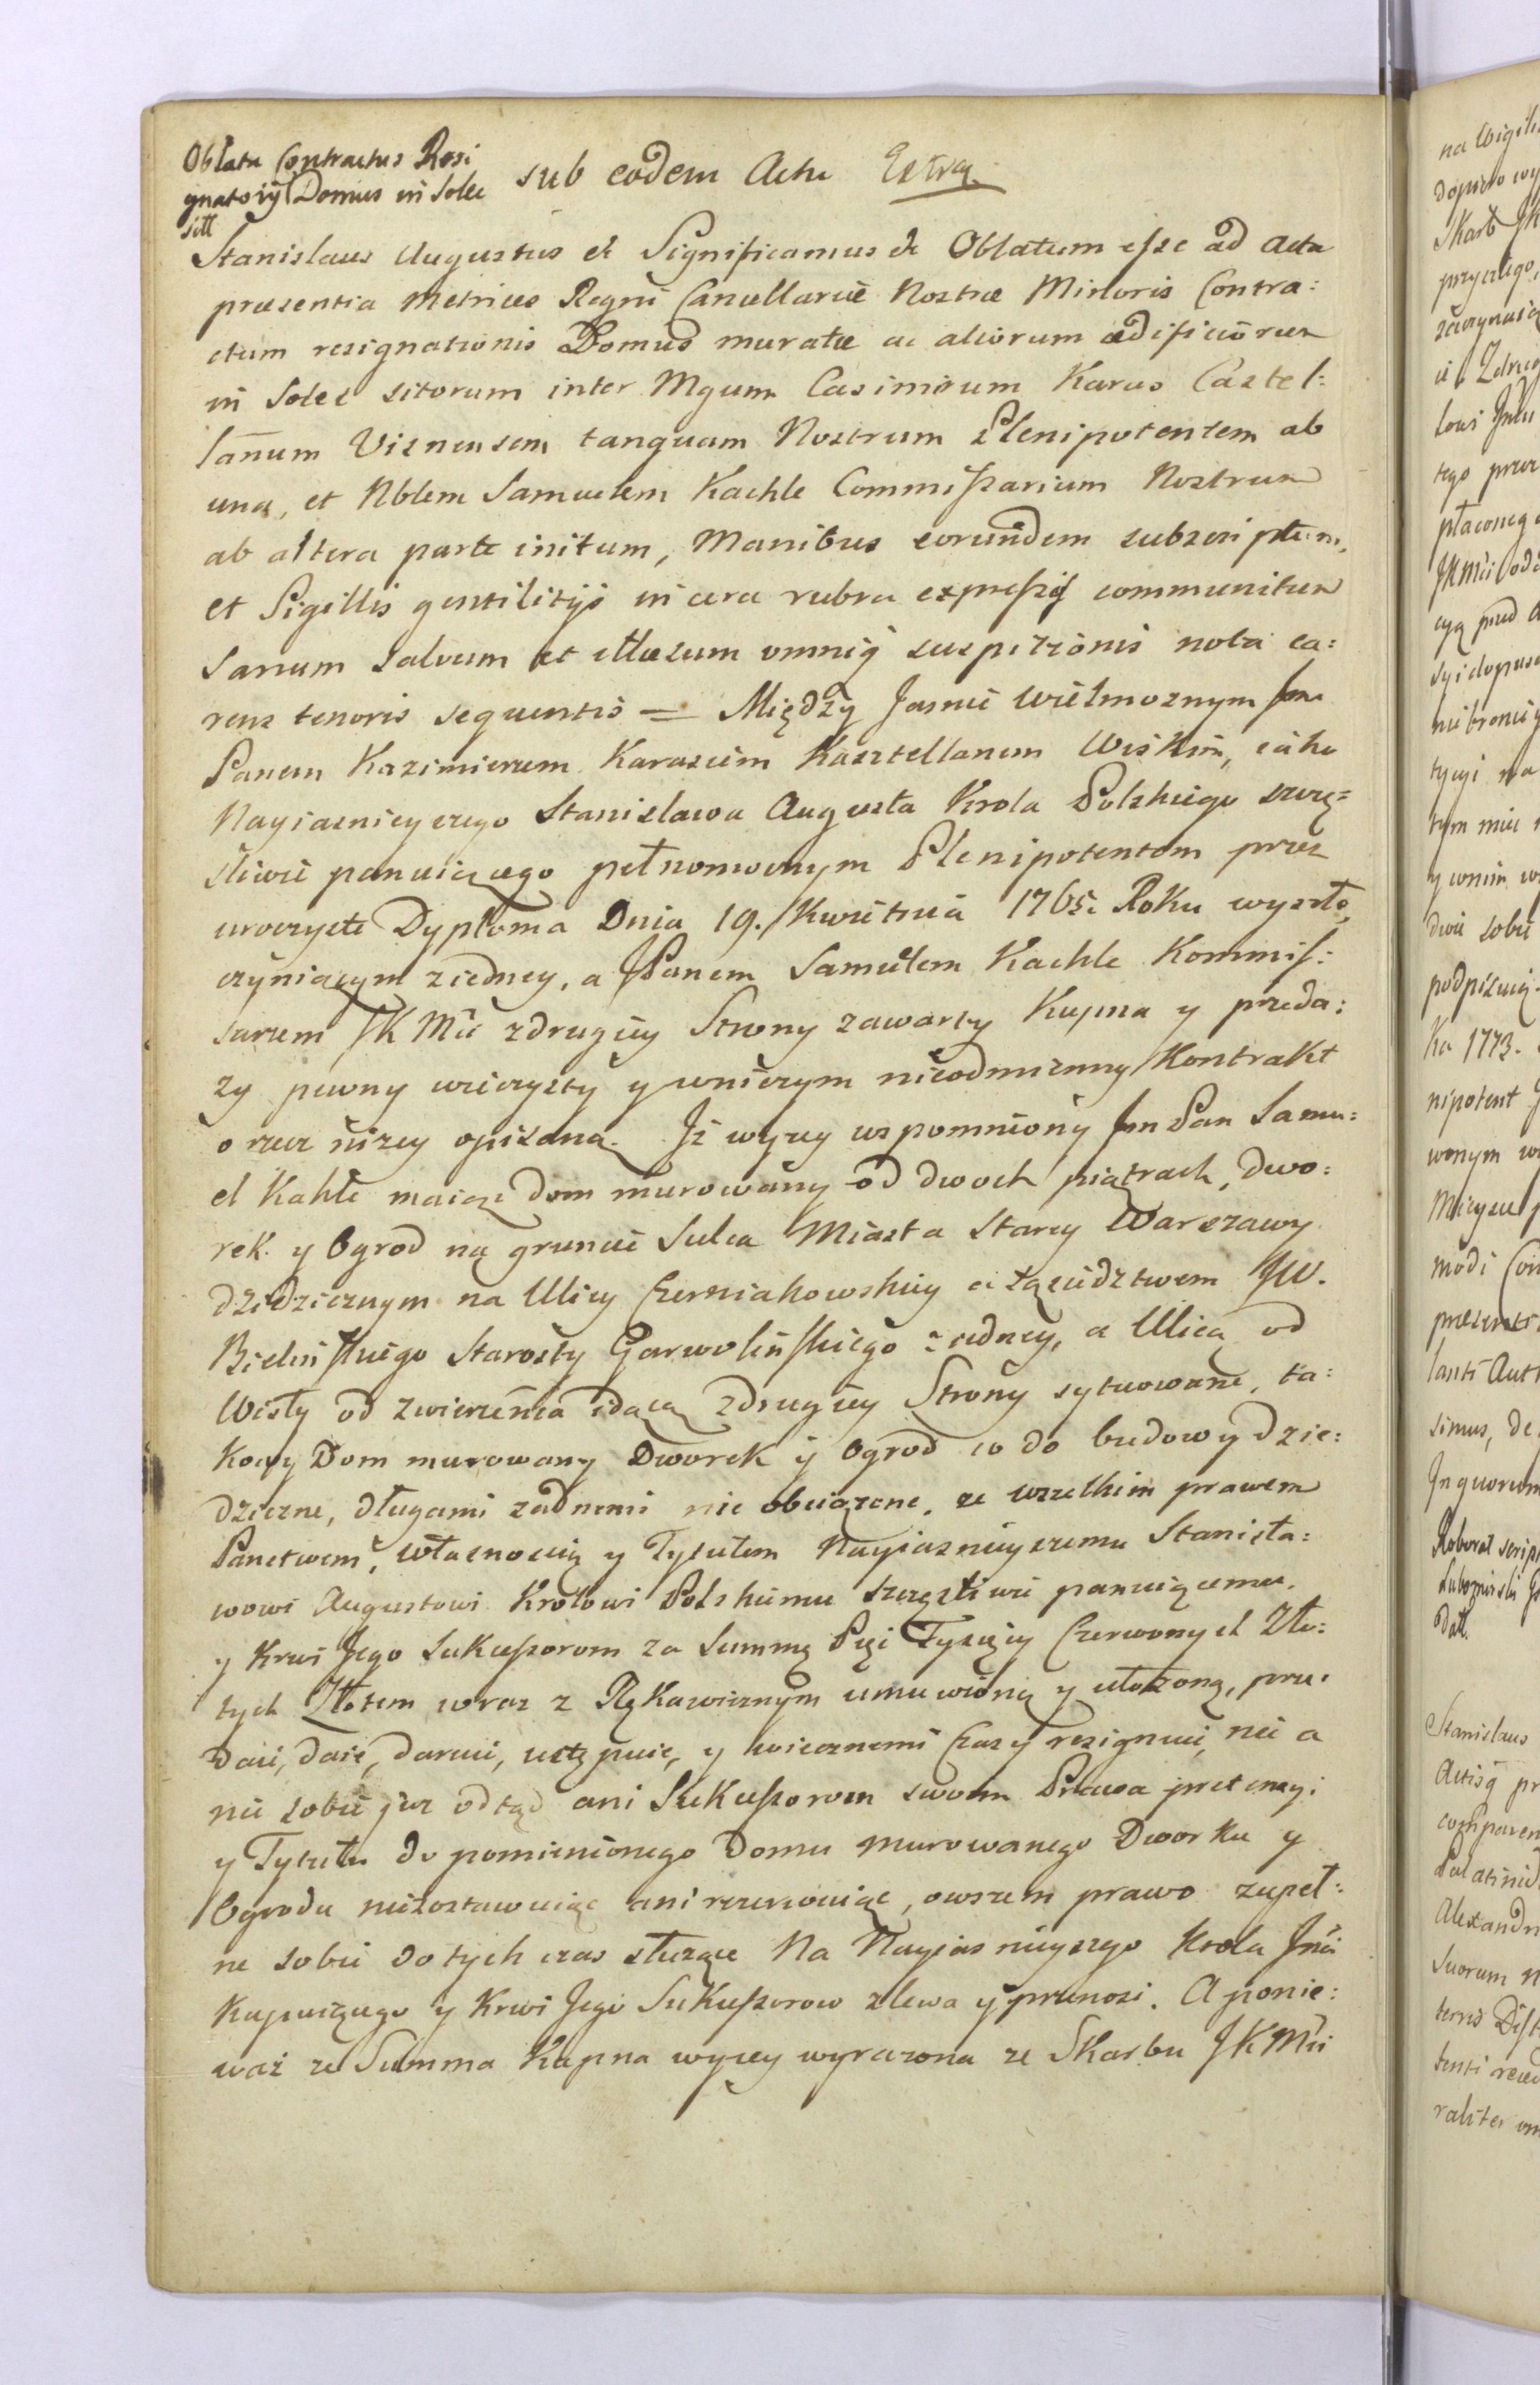 Oblata Contractus Resi
gnatorij Domus in Solec
sitt
sub eodem Actu Extra
Stanislaus Augustus et Significamus &c Oblatum esse ad Acta
præsentia Metrices Regni Cancellariæ Nostræ Minoris Contra:
ctum resignationis Domus muratæ ac aliorum ædificiorum
in Solec sitorum inter Mgum Casimirum Karas Castel:
lanum Visnensem tanquam Nostrum Plenipotentem ab
una, et Nblem Samuelem Kachle Commissarium Nostrum
ab altera parte initum, Manibus eorundem subscriptum,
et Sigillis gentilitijs in cera rubra expressis communitum
Sanum salvum et illæsum omniq suspitionis nota ca:
rens tenoris sequentis = Między Jasnie Wielmoznym Jmc
Panem Kazimierzem Karasiem Kasztellanem Wiskim, iako
Nayiasnieyszego Stanisława Augusta Krola Polskiego szczę=
sliwie panuiącego pełnomocnym Plenipotentem przez
uroczyste Dyploma Dnia 19. Kwietnia 1765. Roku wyszłe,
czyniącym z iedney, a JPanem Samuelem Kachle Kommis:
sarzem JK Mci z drugiey Strony zawarty Kupna y przeda:
zy pewny wieczysty y wniczym nieodmienny Kontrakt
o rzecz nizey opisaną. Iż wyzey wspomniony Jmc Pan Samu:
el Kahle maiąc dom murowany od dwoch piątrach, dwo:
rek y Ogrod na gruncie Sulca Miasta Starey Warszawy
dziedzicznym na Ulicy Czerniakowskiey a sąsiedztwem JW.
Bielinskiego Starosty Garwolinskiego z iedney, a Ulicą od
Wisły od zwierzenca idącą z drugiey Strony sytuowane, ta:
kowy Dom murowany Dworek y Ogrod co do budowy dzie:
dziczne, długami zadnemi nie obciązone, ze wszelkim prawem
Panstwem, własnoscią y Tytułem Nayiasnieyszemu Stanisła:
wowi Augustowi Krolowi Polskiemu szczęsliwie panuiącemu,
y Krwi Jego Sukcessorom za Summę Pięć Tysięcy Czerwonych Zło:
tych Złotem wraz z Rękawicznym umuwioną y ułozoną, prze:
daie, daie, daruie, ustępuie, y wiecznemi Czasy resignuie, nic a
nic sobie juz odtąd ani Sukcessorom swoim Prawa pretensyi
y Tytułu do pomienionego Domu murowanego Dworku y
Ogrodu niezostawuiąc ani rezerwuiąc, owszem prawo zupeł:
ne sobie dotych czas słuzące Na Nayiasnieyszego Krola Jmci
Kupuiącego y Krwi Jego Sukcessorow zlewa y przenosi. A ponie:
waz ze Summa Kupna wyzey wyrazona ze Skarbu JKMci